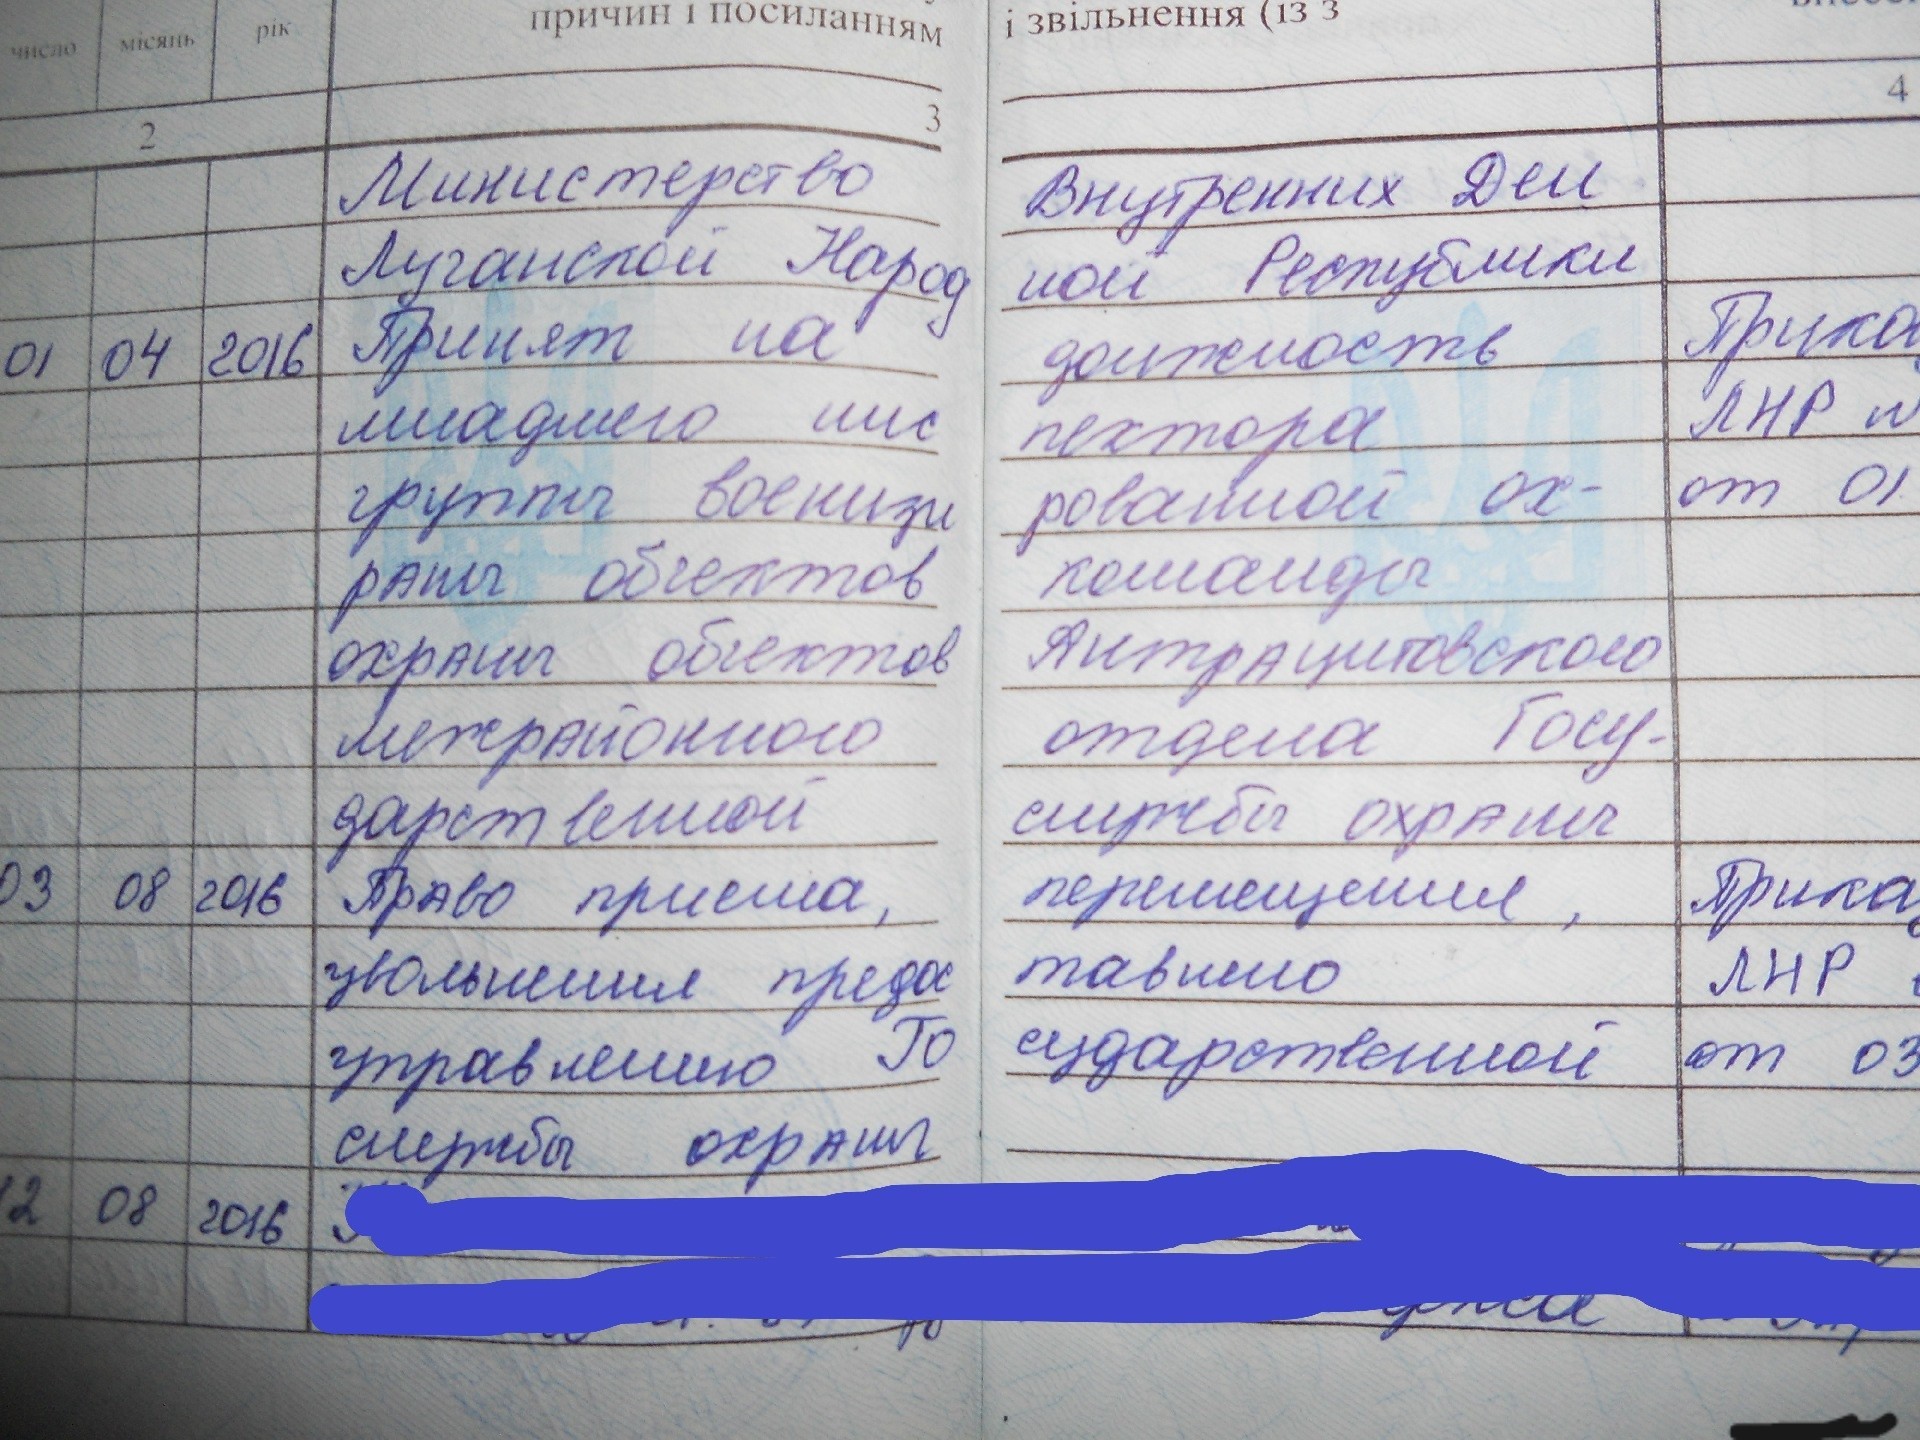 число місяць рік причин і посиланням і звільнення (із з
2 3 4
Министерство Внутренних Дел
Луганской Народ ной Республики
01 04 2016 Принят на должность Прика
младшего инс пектора ЛНР
группы военизи рованной ох- от 01
раны объектов команды
охраны объектов Антрацитовского
межрайонного отдела Госу-
дарственной службы охраны
03 08 2016 Право приема, перемещения, Приказ
увольнения предос тавлено ЛНР
управлению Го сударственной от 03
службы охраны
12 08 2016